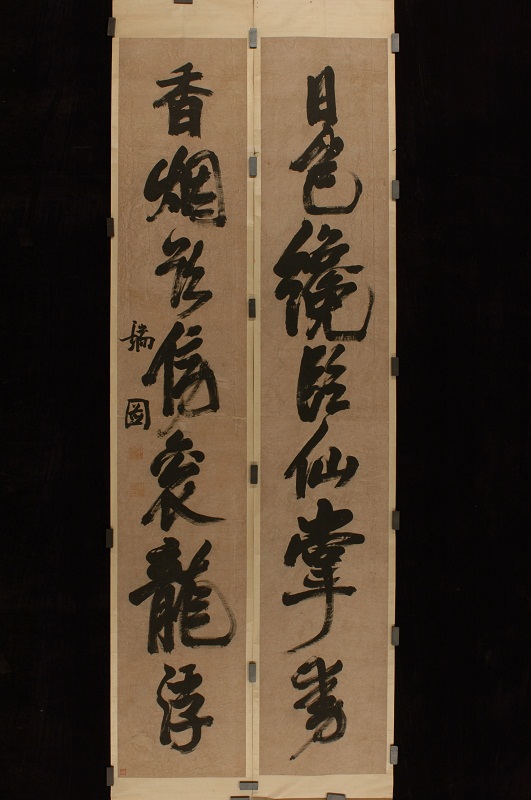 日色纔臨仙掌動
香烟欲傍衮龍浮
瑞圖